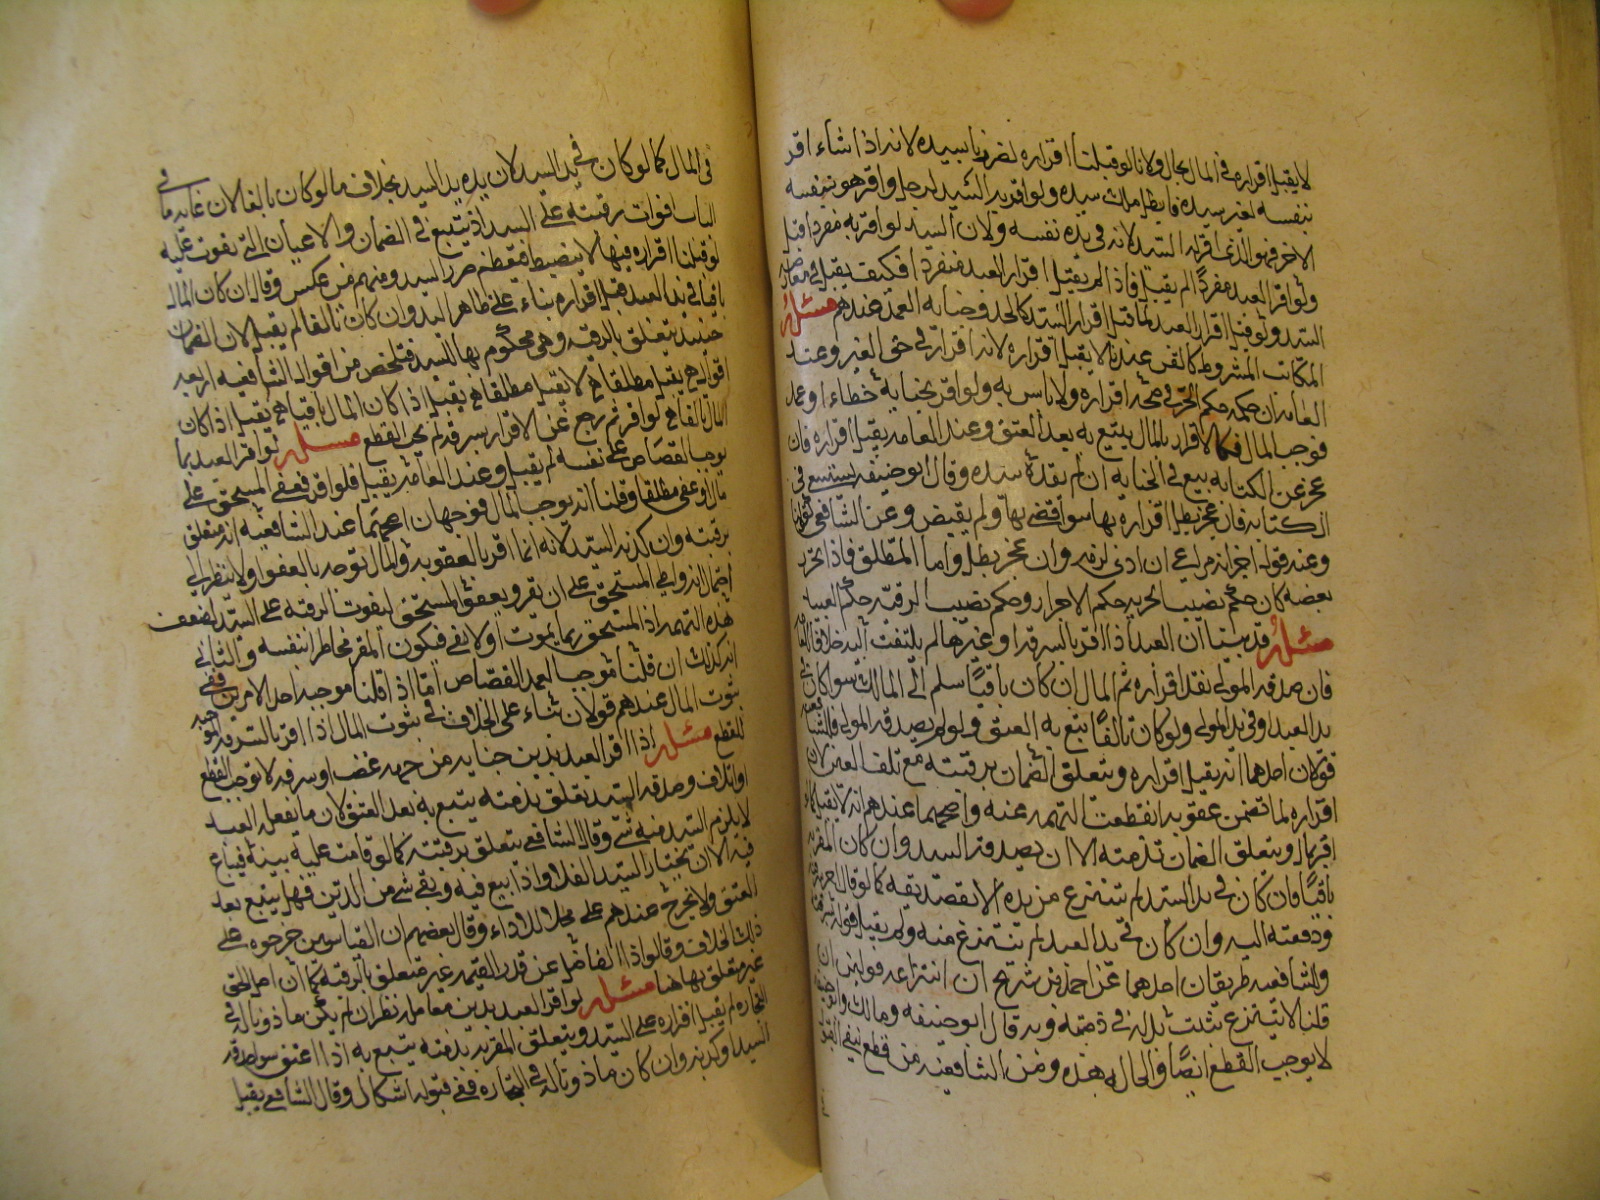 لا يقبل اقراره في المال بحال ولانا لو قبلنا اقراره لضررنا بسيده لانه اذا شاء اقر
بنفسه لغير سيده فابطل ملك سيده ولو اقر به السيد لرجل واقر هو بنفسه
لاخر فهو الذي اقر له السيد لانه في يده نفسه ولان السيد لو اقر به مفردا قبل
ولو اقر العبد مفردا لم يقبل فاذا لم يقبل اقرار العبد منفردا فكيف يقبل في معارضة
السيد ولو قبل اقرار العبد لما قبل اقرار السيد كالحد وجناية العمد عندهم مسئلة
المكاتب المشروط كالقن عندنا لا يقبل اقراره لانه اقرار في حق الغير وعند
العامة ان حكمه حكم الحر في صحة اقراره ولا باس به ولو اقر بجناية خطاء او عمد
فوجب المال فكالاقرار بالمال يتبع به بعد العتق وعند العامة يقبل اقراره فان
عجز عن الكتابة بيع في الجناية ان لم يفده سيده وقال ابو حنيفة يستسعى في
الكتابة فان عجز بطل اقراره بها سوا قضي بها ولم يقبض وعن الشافعي
وعنه قول اخر انه مراعى ان ادى لزمه وان عجز بطل واما المطلق فاذا تحرر
بعضه كان حكم نصيب الحرية حكم الاحرار وحكم نصيب الرقية حكم العبيد
مسئلة قد بينا ان العبد اذا اقر بالسرقة او غيرها لم يلتفت اليه خلافا
فان صدقه المولى نفذ اقراره ثم المال ان كان باقيا سلم الى المالك سوا كان في
يد العبد او في يد المولى ولو كان تالفا يتبع به العتق ولو لم يصدقه المولى فللشافعية
قولان احدهما انه يقبل اقراره ويتعلق الضمان برقبته مع تلف العين لان
اقراره لما تضمن عقوبة انقطعت التهمة عنه واصحهما عندهم انه لا يقبل كما
اقر بمال ويتعلق الضمان بذمته الا ان يصدقه السيد وان كان المقر به
باقيا فان كان في يد السيد لم تنتزع من يده الا بتصديقه كما لو قال
ودفعته اليه وان كان في يد العبد لم تنتزع منه ولم يقبل قوله
وللشافعية طريقان احدهما عن احمد بن شريح ان انتزاعه قولين ان
قلنا لا ينتزع يثبت بدله في ذمته وبه قال ابو حنيفة ومالك
لا يوجب القطع ايضا والحال هذه ومن الشافعية من قطع بنفي القبول
في المال كما لو كان في يد السيد لان يده يد السيد بخلاف ما لو كان تالفا لان غاية ما في
الباب افوات رقبته على السيد اذ يتبع في الضمان والاعيان التي تفوت عليه
لو قبلنا اقراره فيها لا ينضبط فيعظم ضرر السيد ومنهم من عكس وقال ان كان المال
باقيا في يد العبد قبل اقراره بناء على ظاهر اليد وان كان تالفا لم يقبل لان الضمان
حينئذ يتعلق بالرقبة وهي محكوم بها للسيد فتلخص من اقوال الشافعية اربعة
اقوال هي يقبل مطلقا هي لا يقبل مطلقا هي يقبل اذا كان المال باقيا هي يقبل اذا كان
المال تالفا هي لو اقر ثم رجع عن الاقرار بسرقة لم يجب القطع مسئلة لو اقر العبد بما
يوجب القصاص على نفسه لم يقبل وعند العامة يقبل فلو اقر فعفى المستحق على
مال او عفى مطلقا وقلنا انه يوجب المال فوجهان اصحهما عند الشافعية انه متعلق
برقبته وان كذبه السيد لانه انما اقر بالعقوبة والمال توجه بالعفو ولا ينظر الى
احتمال انه واطى المستحق على ان يقر ويعفو المستحق لتفوت الرقبة على السيد لضعف
هذه التهمة اذ المستحق ربما يموت او لا يفي فيكون المقر مخاطرا بنفسه والثاني
انه كذلك ان قلنا موجب العمد القصاص اما اذا قلنا موجبه احد الامرين ففي
ثبوت المال عندهم قولان بناء على الخلاف في ثبوت المال اذا اقر بالسرقة الموجبة
للقطع مسئلة اذا اقر العبد بدين جناية من جهة غصب او سرقة لا توجب القطع
او اتلاف وصدقه السيد تعلق بذمته يتبع به بعد العتق لان ما يفعله العبد
لا يلزم السيد منه شي وقال الشافعي يتعلق برقبته كما لو قامت عليه بينة فيباع
فيه الا ان يختار السيد الفداء واذا بيع فيه وبقي شي من الدين فهل يتبع بعد
العتق ولا يخرج عندهم على محل الاداء وقال بعضهم ان القياسيين خرجوه على
ذلك الخلاف وقالوا اذا الفاضل عن قدر القيمة غير متعلق بالرقبة كما ان اصل الحق
غير متعلق بها هنا مسئلة لو اقر العبد بدين معاملة نظر ان لم يكن ماذونا له في
التجارة لم يقبل اقراره على السيد ويتعلق المقر به بذمته يتبع به اذا اعتق سوا صدقه
السيد او كذبه وان كان ماذونا له في التجارة ففي قبوله اشكال وقال الشافعي يقبل